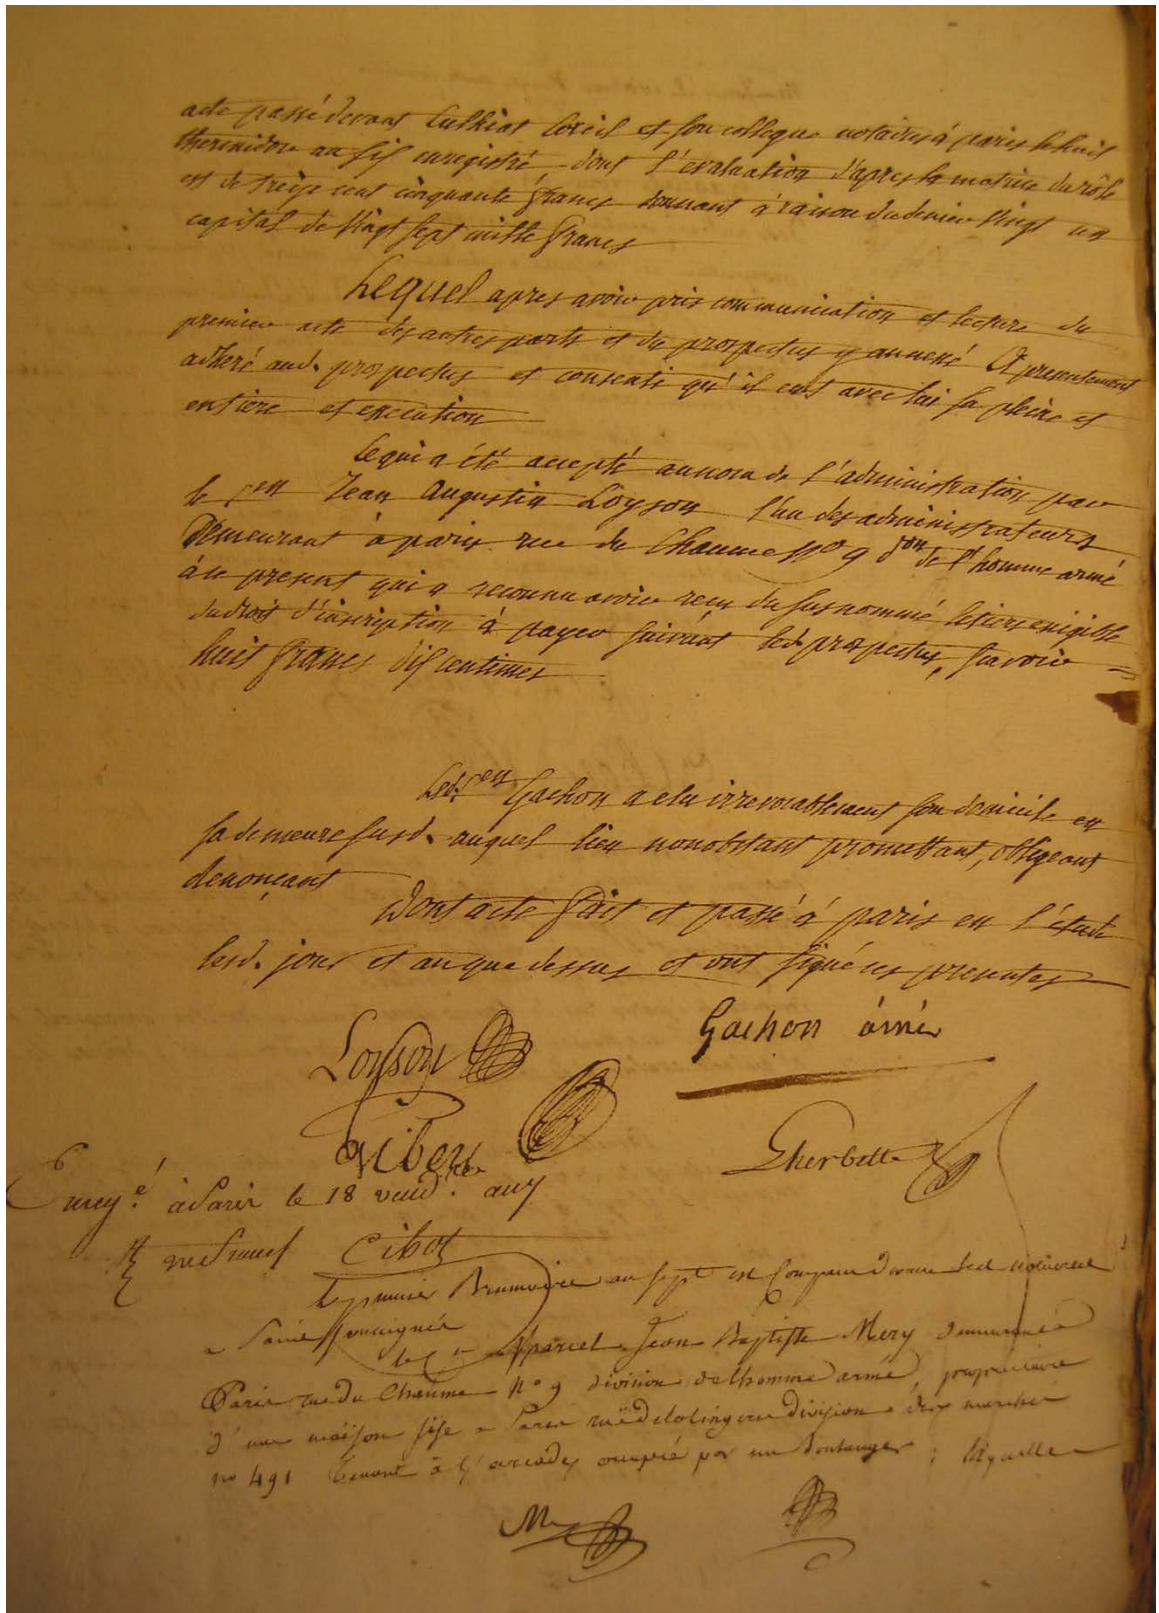 acte passé devant Cuthiat Coreil et son collegue notaires à paris le huit
thermidor an six enregistré, dont l'évaluation d'apres la matrice du rôle
est de treize cent cinquante francs donnant à raison du denier vingt un
capital de vingt sept mille francs
Lequel apres avoir pris communication et lecture du
premier acte des autres parts et du prospectus y annexé A presentement
adheré aud. prospectus et consenti qu'il eut avec lui sa pleine et
entiere et execution
Ce qui a été accepté au nom de l'administration par
le Cen Jean Augustin Loyson l'un des administrateurs
Demeurant à paris rue du Chaume No 9 don de l'homme armé
à ce present qui a reconnu avoir recu du susnommé le tiers exigible
du droit d'inscription à payer suivant led. prospectus, savoir =
huit francs dix centimes
Led. Cen Gachon a elu irrevocablement son domicile en
sa demeure susd. auquel lieu nonobstant promettant, obligeant
denonçant
Dont acte fait et passé à paris en l'étude
lesd. jour et an que dessus et ont signé ces presentes
Loyson Gachon ainé
Gibert Gherbette
Enregé. à Paris le 18 vend.re an 7
R un franc Cibot
Le premier Brumaire an sept est Comparu devant les notaires
a Paris soussignés
le Cen Marcel Jean Baptiste Mery demeurant a
Paris rue du Chaume No 9 division de lhomme armé, proprietaire
d'une maison sise a Paris ruë de la lingerie division des marchés
no 491 Tenant à arcades occupé par un boulanger; laquelle
M